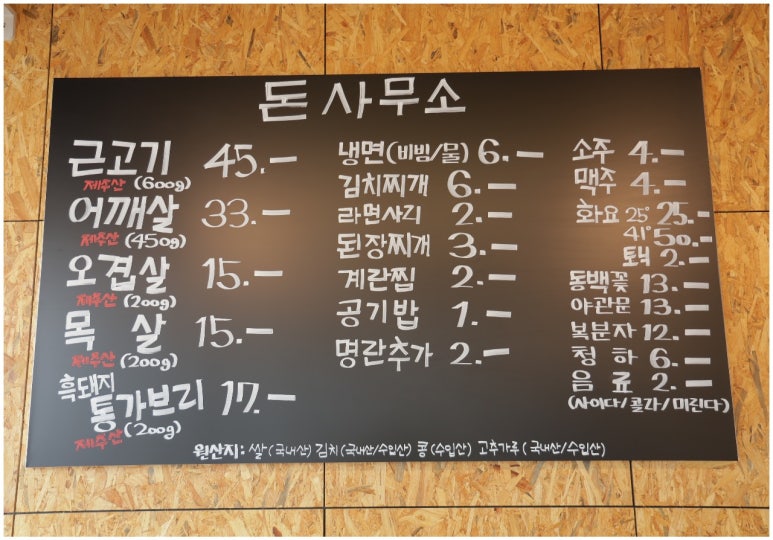 돈사무소
근고기 45.-
제주산 (600g)
어깨살 33.-
제주산 (450g)
오겹살 15.-
제주산 (200g)
목 살 15.-
제주산 (200g)
흑돼지
통가브리 17.-
제주산 (200g)
냉면(비빔/물) 6.-
김치찌개 6.-
라면사리 2.-
된장찌개 3.-
계란찜 2.-
공기밥 1.-
명란추가 2.-
소주 4.-
맥주 4.-
화요 25° 25.-
41° 50.-
토닉 2.-
동백꽃 13.-
야관문 13.-
복분자 12.-
청 하 6.-
음 료 2.-
(사이다/콜라/미린다)
원산지: 쌀(국내산) 김치(국내산/수입산) 콩(수입산) 고추가루(국내산/수입산)